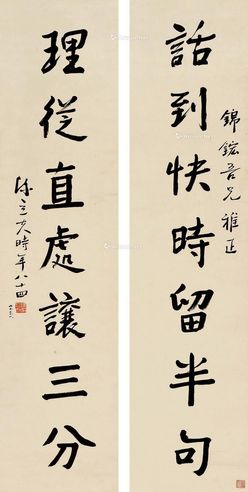 話到快時留半句
錦鋐吾兄雅正
理從直處讓三分
陳立夫時年八十四